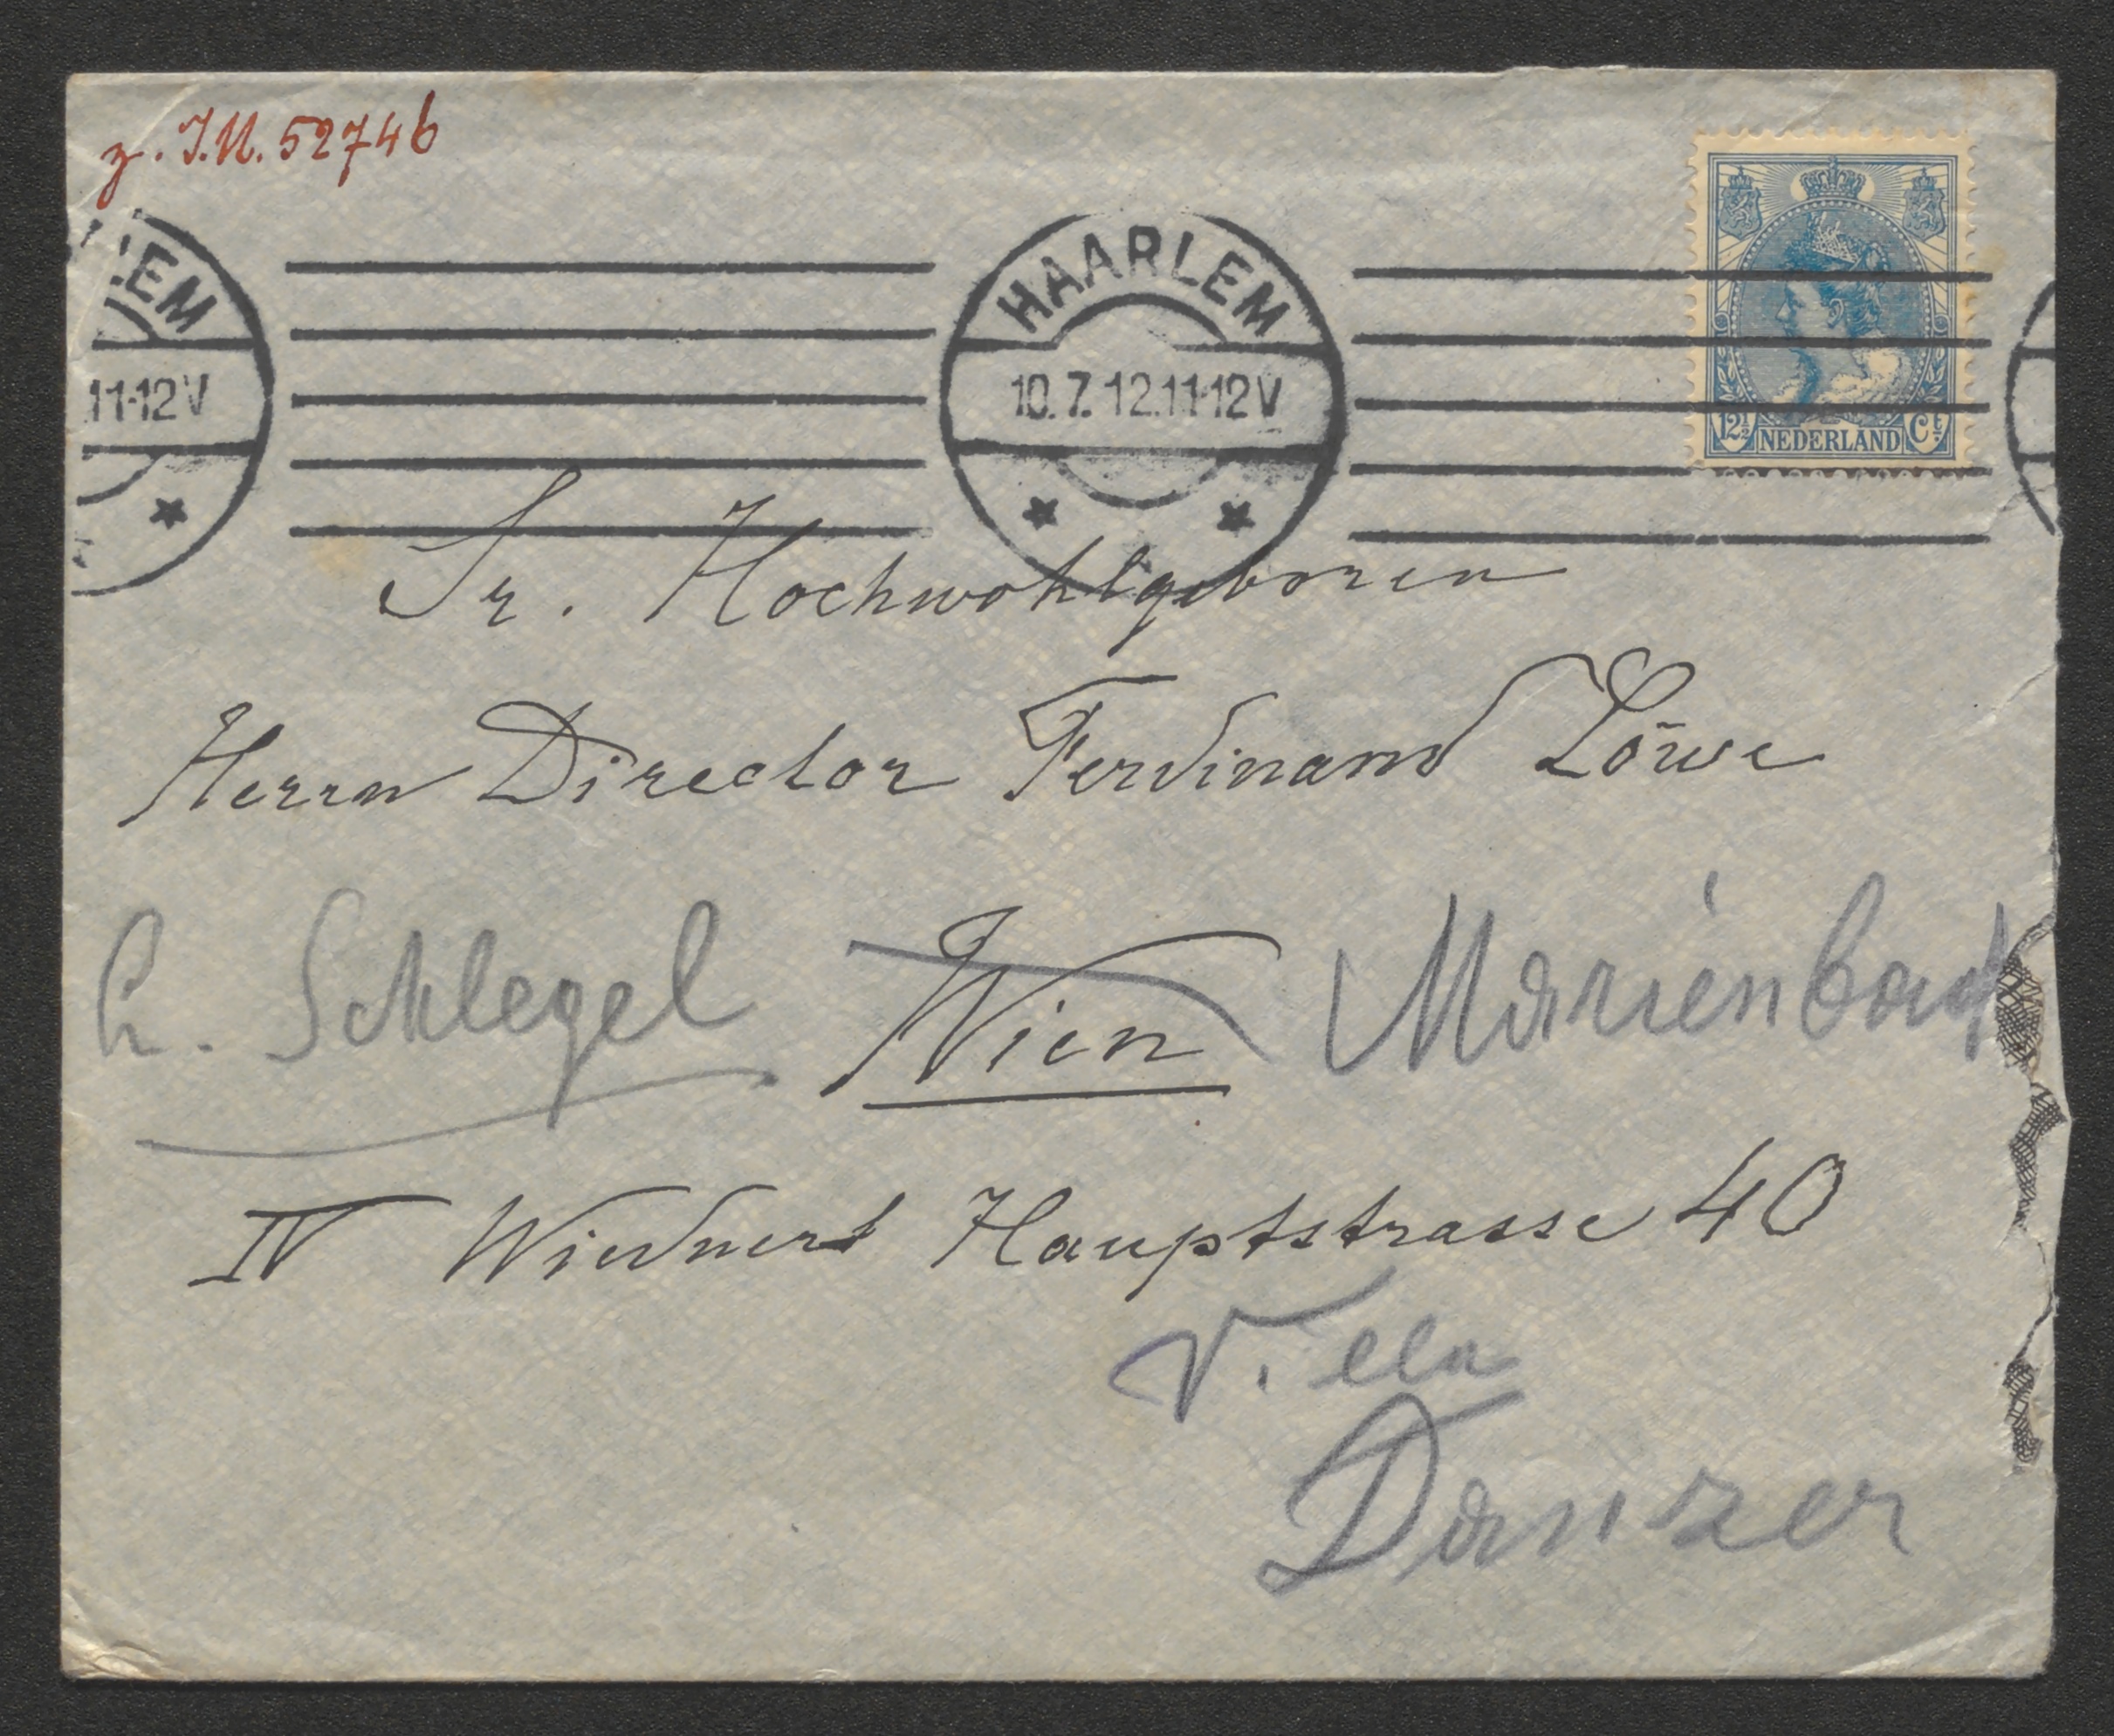 z. I.N. 52746
LEM
11-12V
HAARLEM
10.7.12.11-12V
12½ NEDERLAND Ct
Sr. Hochwohlgeboren
Herrn Director Ferdinand Löwe
Schlegel Wien Marienbad
IV Wiedner Hauptstrasse 40
Villa
Danzer